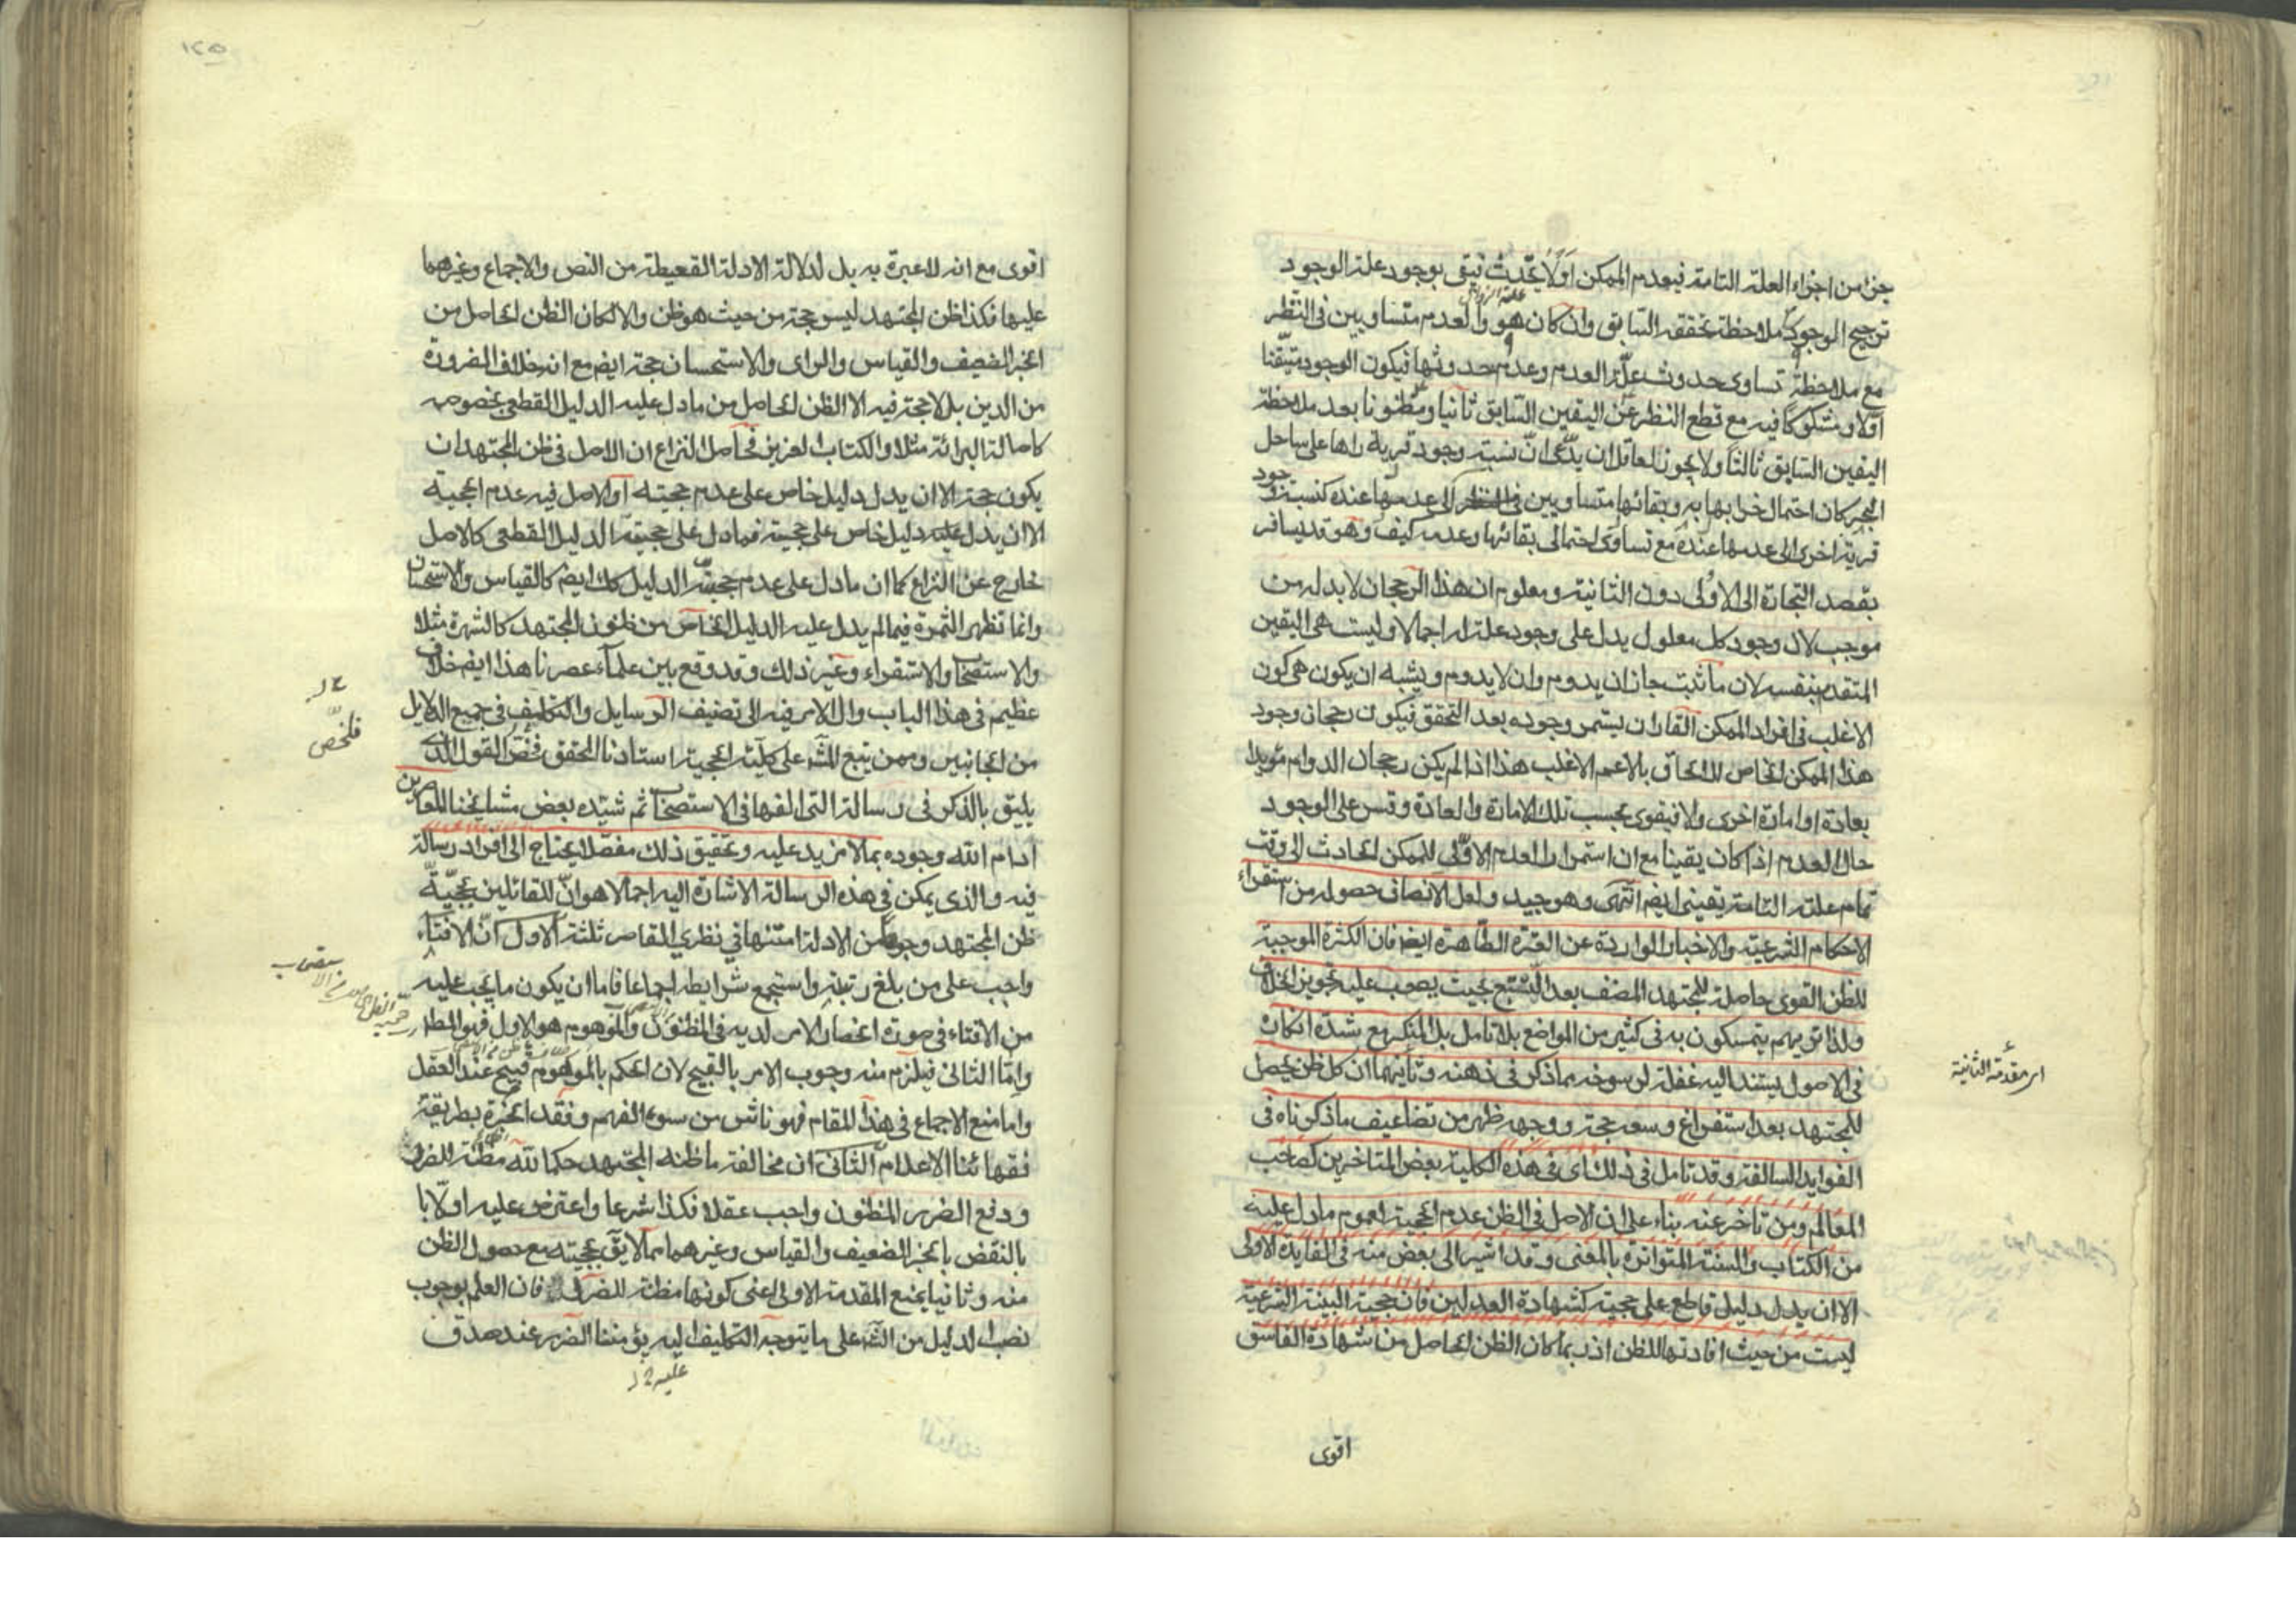 جزء من اجزاء العلة التامة فيعدم الممكن اولا يحدث فيبقى بوجود علة الوجود
ترجيح الوجود بملاحظة تحققه السابق وان كان هو والعدم متساويين في النظر
مع ملاحظة تساوى حدوث علة العدم وعدم حدوثها فيكون الوجود متيقنا
اولا ومشكوكا فيه مع قطع النظر عن اليقين السابق ثانيا ومظنونا بعد ملاحظة
اليقين السابق ثالثا ولا يجوز لعاقل ان يدعى ان نسبة وجود قرية راها على ساحل
البحر كان احتمال خرابها به وبقائها متساويين في النظر الى عدمها عنده كنسبة وجود
قرية اخرى الى عدمها عنده مع تساوى احتمالى بقائها وعدمه كيف وهو قد يسافر
بقصد التجارة الى الاولى دون الثانية ومعلوم ان هذا الرجحان لا بد له من
موجب لان وجود كل معلول يدل على وجود علة له اجمالا وليست هى اليقين
المتقدم بنفسه لان ما ثبت جاز ان يدوم وان لا يدوم ويشبه ان يكون هى كون
الاغلب فى افراد الممكن القار ان يستمر وجوده بعد التحقق فيكون رجحان وجود
هذا الممكن الخاص للالحاق بالاعم الاغلب هذا اذا لم يكن رجحان الدوام مؤيدا
بعادة او امارة اخرى والا فيقوى بحسب تلك الامارة والعادة وقس على الوجود
حال العدم اذا كان يقينا مع ان استمرار العدم الاولى للممكن الحادث الى وقت
تمام علته التامة يقينى ايضم انتهى وهو جيد ولعل الانصاف حصوله من استقراء
الاحكام الشرعية والاخبار الواردة عن العترة الطاهرة ايضم فان الكثرة الموجبة
للظن القوى حاصلة للمجتهد المنصف بعد التتبع بحيث يصعب عليه تجويز الخلاف
ولذا تريهم يتمسكون به فى كثير من المواضع بلا تامل بل المنكر مع شدة انكاره
فى الاصول يستند اليه غفلة لرسوخه بما ذكر فى ذهنه وثانيهما ان كل ظن يحصل
للمجتهد بعد استفراغ وسعه حجة ووجهه ظهر من تضاعيف ما ذكرناه فى
الفوايد السالفة وقد تامل فى ذلك اى فى هذه الكلية بعض المتاخرين كصاحب
المعالم ومن تاخر عنه بناء على ان الاصل فى الظن عدم الحجية لعموم ما دل عليه
من الكتاب والسنة المتواترة بالمعنى وقد اشير الى بعض منه فى الفايدة الاولى
الا ان يدل دليل قاطع على حجيته كشهادة العدلين فان حجية البينة الشرعية
ليست من حيث افادتها للظن اذ ربما كان الظن الحاصل من شهادة الفاسق
اقوى
امر مقدمة الثانية
١٢٥
اقوى مع انه لا عبرة به بل لدلالة الادلة القطعية من النص والاجماع وغيرهما
عليها فكذا ظن المجتهد ليس حجة من حيث هو ظن والا لكان الظن الحاصل من
الخبر الضعيف والقياس والراى والاستحسان حجة ايضم مع انه خلاف الضرورة
من الدين بل لا حجة فيه الا الظن الحاصل من ما دل عليه الدليل القطعى بخصوصه
كاصالة البرائة مثلا والكتاب العزيز فحاصل النزاع ان الاصل فى ظن المجتهد ان
يكون حجة الا ان يدل دليل خاص على عدم حجيته او الاصل فيه عدم الحجية
الا ان يدل عليه دليل خاص على حجيته فما دل على حجيته الدليل القطعى كالاصل
خارج عن النزاع كما ان ما دل على عدم حجيته الدليل كك ايضم كالقياس والاستحسان
وانما تظهر الثمرة فيما لم يدل عليه الدليل الخاص من ظنون المجتهد كالشهرة مثلا
والاستصحاب والاستقراء وغير ذلك وقد وقع بين علماء عصرنا هذا ايضم خلاف
عظيم فى هذا الباب وال الامر فيه الى تصنيف الرسايل والتكليف فى جميع الدلايل
من الجانبين وممن يتبع الثمة على كلية الحجية استادنا المحقق فخص القول الذى
يليق بالذكر فى رسالة التى الفها فى الاستصحاب ثم شيده بعض مشايخنا المعاصرين
ادام الله وجوده بما لا مزيد عليه وتحقيق ذلك مفصلا يحتاج الى افراد رسالة
فيه والذى يمكن فى هذه الرسالة الاشارة اليه اجمالا هو ان للقائلين بحجية
ظن المجتهد وجوها من الادلة امتنها في نظري القاصر ثلثة الاول ان الافتاء
واجب على من بلغ رتبته واستجمع شرايطه اجماعا فاما ان يكون ما يجب عليه
من الافتاء فى صورة انحصار الامر لديه فى المظنون والموهوم هو الاول فهو المط
واما الثانى فيلزم منه وجوب الامر بالقبيح لان الحكم بالموهوم قبيح عند العقل
واما منع الاجماع فى هذا المقام فهو ناش من سوء الفهم وفقد الخبرة بطريقة
فقهائنا الاعلام الثانى ان مخالفة ما ظنه المجتهد حكما لله مظنة للضرر
ودفع الضرر المظنون واجب عقلا فكذا شرعا واعترض عليه اولا با
بالنقض بالخبر الضعيف والقياس وغيرهما مما لا يق بحجيته مع حصول الظن
منه وثانيا بمنع المقدمة الاولى اعنى كونها مظنة للضرر فان العلم بوجوب
نصب الدليل من الثمة على ما يتوجه التكليف اليه يؤمننا الضرر عند صدق
فلخص